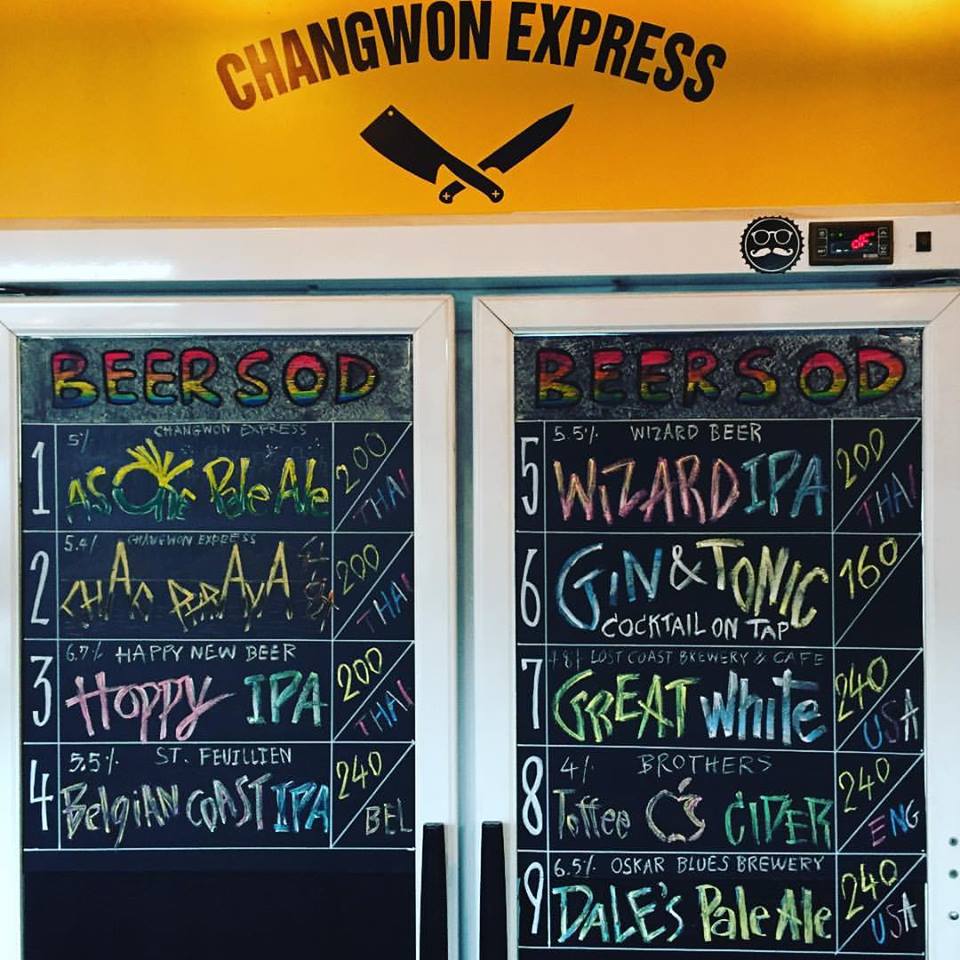 CHANGWON EXPRESS
BEERS OD
1 5% CHANGWON EXPRESS
ASOKE Pale Ale 200 THAI
2 5.4% CHANGWON EXPRESS
CHAO PHRAYA 200 THAI
3 6.7% HAPPY NEW BEER
Hoppy IPA 200 THAI
4 5.5% ST. FEUILLIEN
Belgian COAST IPA 240 BEL
BEERS OD
5 5.5% WIZARD BEER
WiZARD IPA 200 THAI
6 GiN & TONIC 160
COCKTAIL ON TAP
7 4.8% LOST COAST BREWERY & CAFE
GREAT White 240 USA
8 4% BROTHERS
Toffee CIDER 240 ENG
9 6.5% OSKAR BLUES BREWERY
DALE'S Pale Ale 240 USA